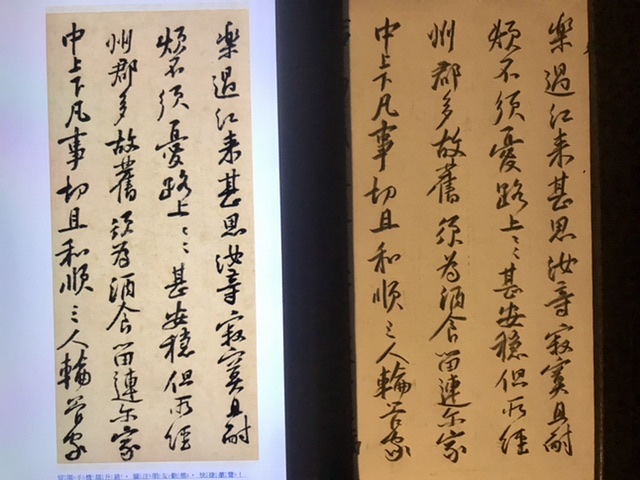 樂過江来甚思汝等寂寞且耐
煩不須憂路上〻〻甚安穩但所經
州郡多故舊須為酒食留連尓家
中上下凡事切且和順三人輪管家
樂過江来甚思汝等寂寞且耐
煩不須憂路上〻〻甚安穩但所經
州郡多故舊須為酒食留連尓家
中上下凡事切且和順三人輪管家